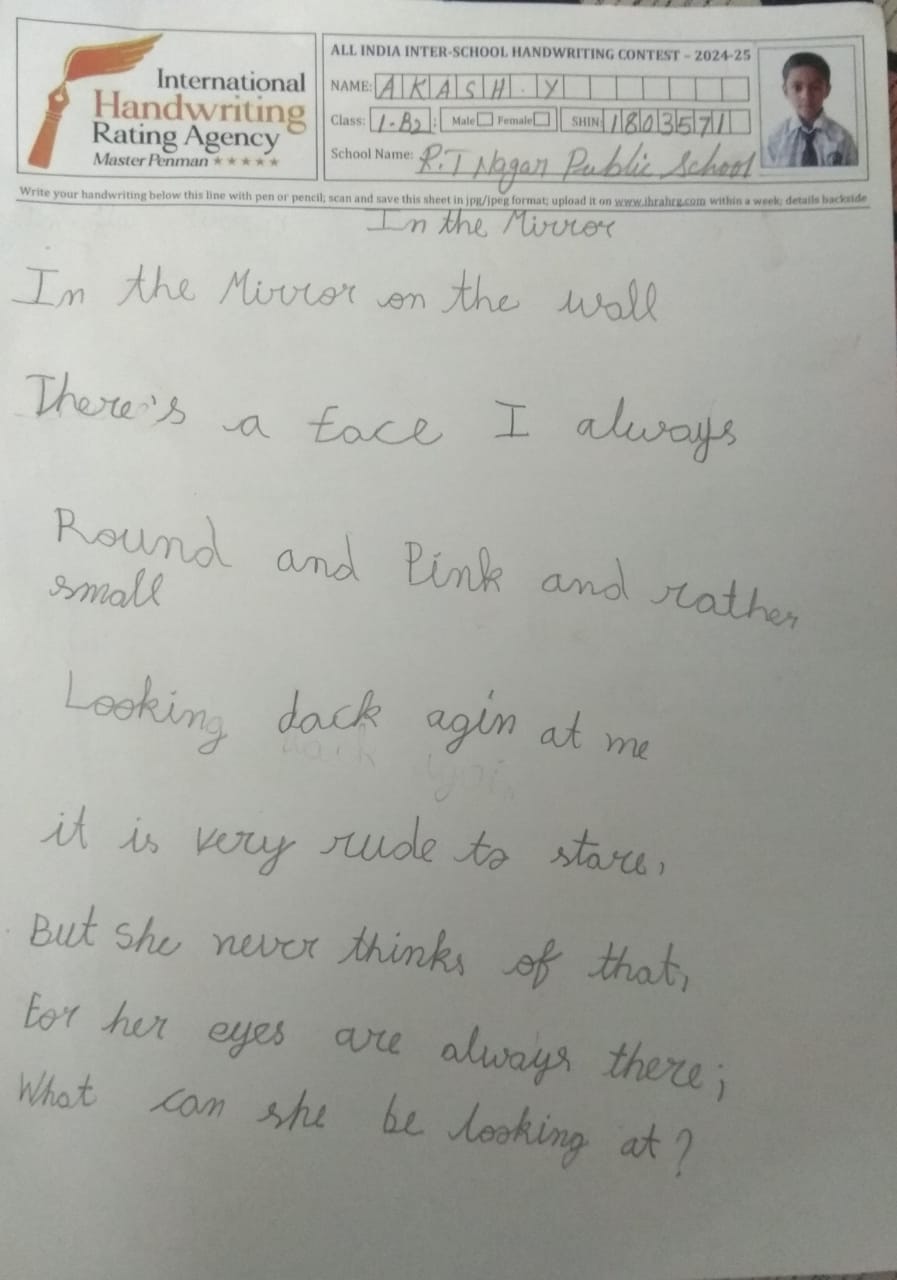 International
Handwriting
Rating Agency
Master Penman ★★★★★
ALL INDIA INTER-SCHOOL HANDWRITING CONTEST – 2024-25
NAME: AKASH.Y
Class: 1-B2 Male Female SHIN: 1803571
School Name: R.T Nagar Public School
Write your handwriting below this line with pen or pencil; scan and save this sheet in jpg/jpeg format; upload it on www.ihrahrg.com within a week; details backside
In the Mirror
In the Mirror on the wall
There's a face I always
Round and Pink and rather
small
Looking dack agin at me
it is very rude to stare,
But she never thinks of that,
For her eyes are always there;
What can she be looking at?